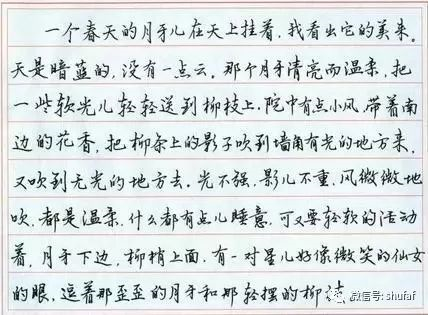 一个春天的月牙儿在天上挂着，我看出它的美来。
天是暗蓝的，没有一点云。那个月牙清亮而温柔，把
一些软光儿轻轻送到柳枝上。院中有点小风，带着南
边的花香，把柳条上的影子吹到墙角有光的地方来，
又吹到无光的地方去。光不强，影儿不重，风微微地
吹，都是温柔，什么都有点儿睡意，可又要轻软的活动
着，月牙下边，柳梢上面，有一对星儿好像微笑的仙女
的眼，逗着那歪歪的月牙和那轻摆的柳
微信号: shufaf